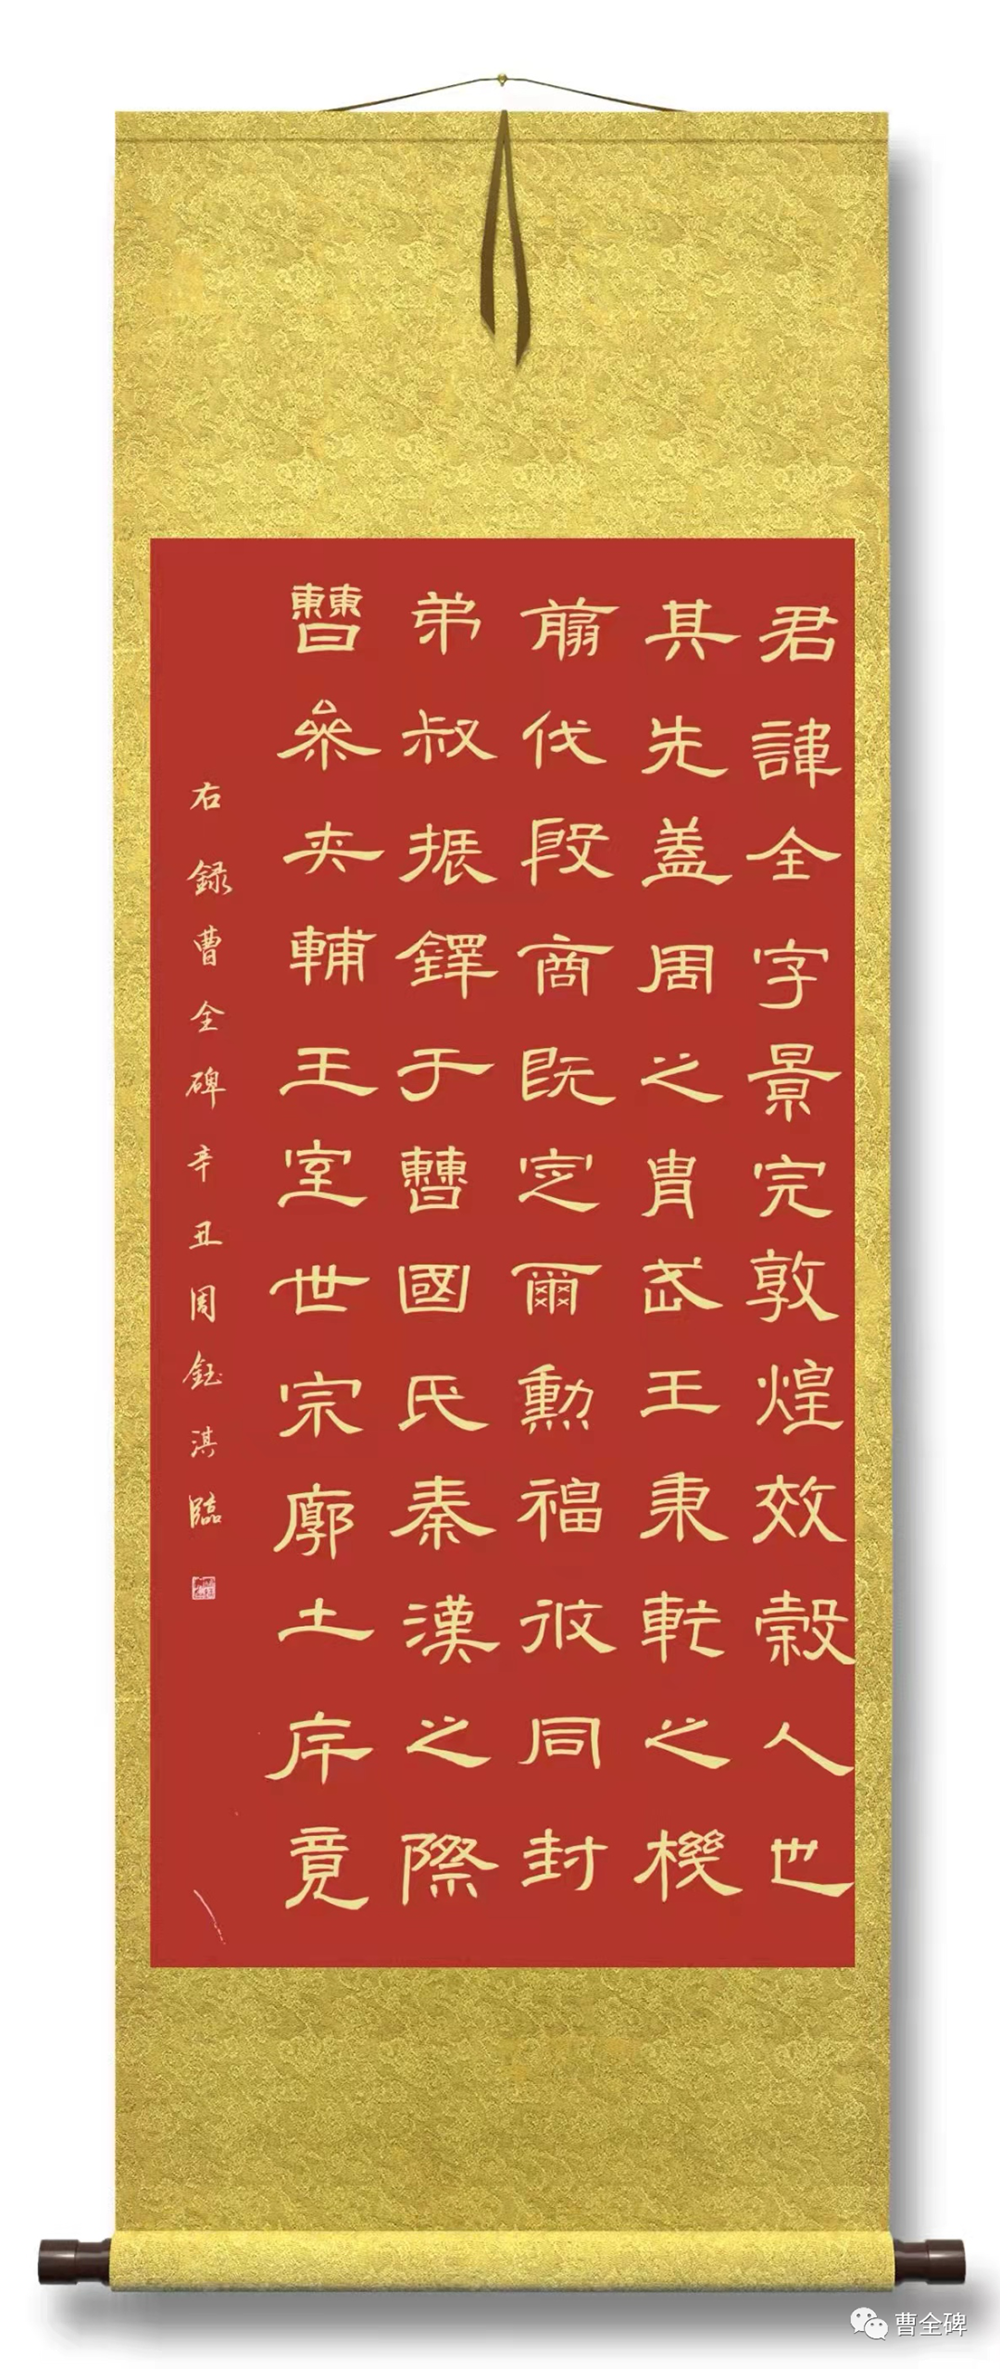 君諱全字景完敦煌效穀人也
其先蓋周之胄武王秉乾之機
翦伐殷商既定爾勳福攸同封
弟叔振鐸于曹國氏秦漢之際
曹參夹輔王室世宗廓土斥竟
右録曹全碑辛丑周鈺淇臨
曹全碑